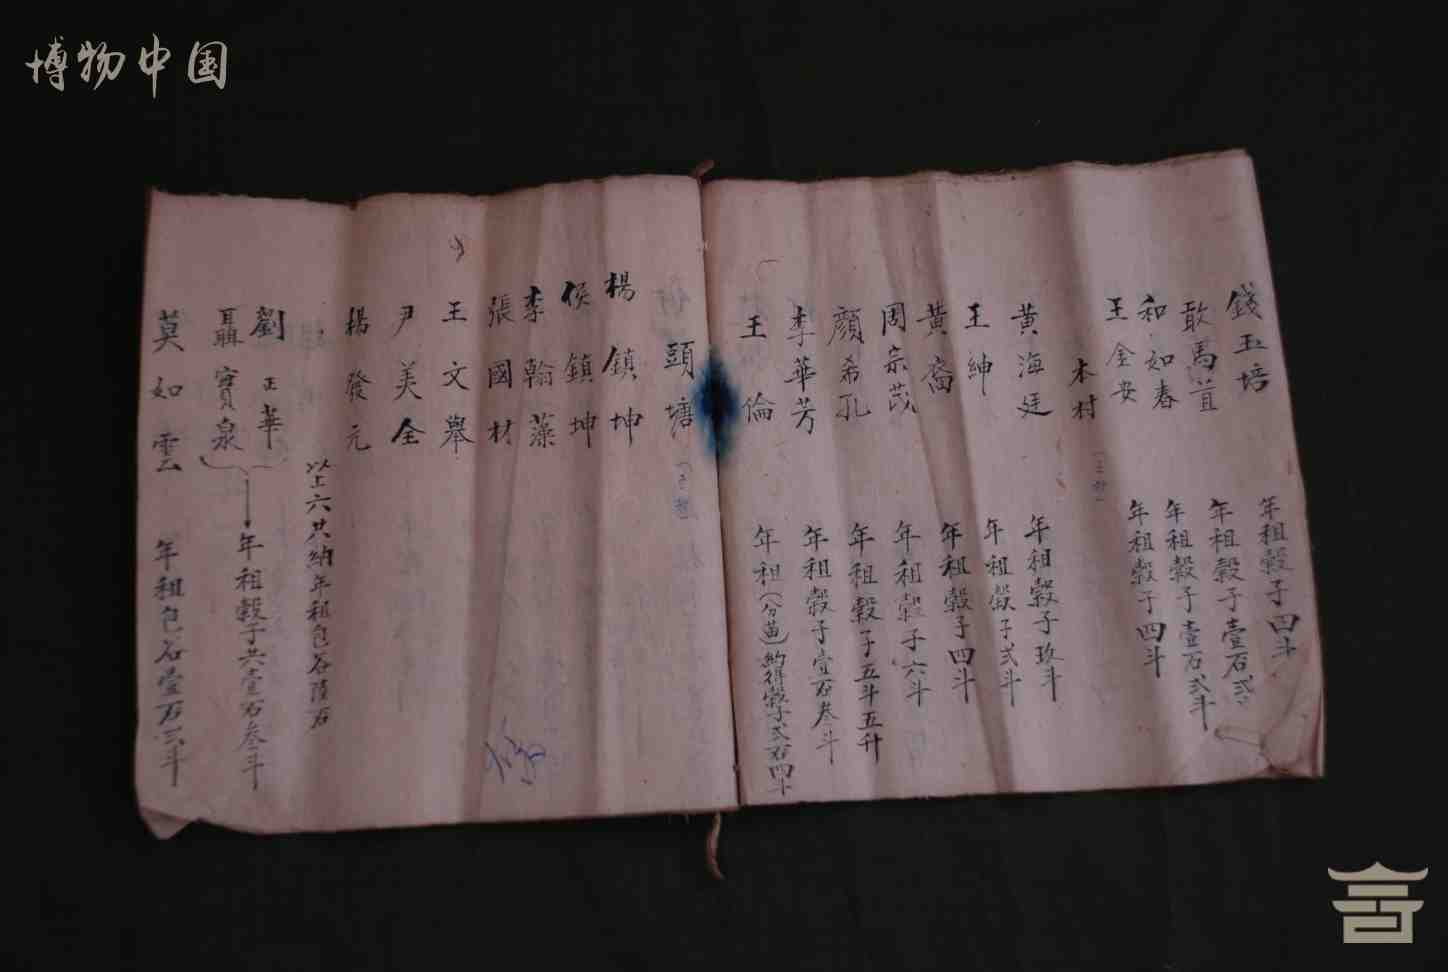 博物中国
錢玉培 年租穀子四斗
耿馬萱 年租穀子壹石弍斗
和如春 年租穀子壹石弍斗
王金安 年租穀子四斗
木村
黄海廷 年租穀子玖斗
王紳 年租穀子弍斗
黄裔 年租穀子四斗
周宗茂 年租穀子六斗
顏希孔 年租穀子五斗五升
李華芳 年租穀子壹石叁斗
王倫 年租(分苗)約得穀子弍石四斗
頭塘
楊鎮坤
侯鎮坤
李翰藻
張國材
王文舉
尹美全
楊發元
以上六共納年租包谷陸石
劉正華
聶寶泉 年租穀子共壹石叁斗
莫如雲 年租包谷壹石弍斗